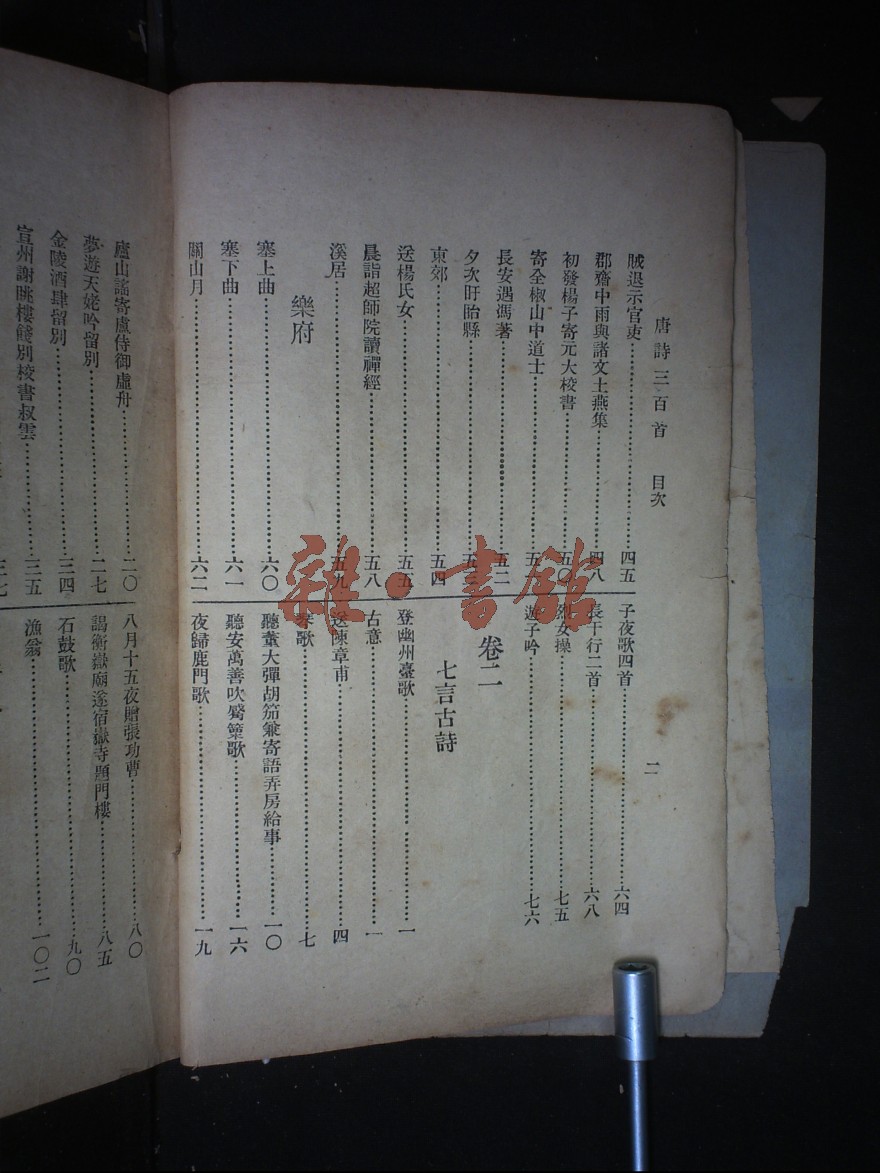 唐詩三百首 目次 二
賊退示官吏 四五
郡齋中雨與諸文士燕集 四八
初發楊子寄元大校書 五〇
寄全椒山中道士 五一
長安遇馮著 五二
夕次盱眙縣 五三
東郊 五四
送楊氏女 五五
晨詣超師院讀禪經 五八
溪居 五九
樂府
塞上曲 六〇
塞下曲 六一
關山月 六二
子夜歌四首 六四
長干行二首 六八
烈女操 七五
遊子吟 七六
卷二
七言古詩
登幽州臺歌 一
古意 一
送陳章甫 四
琴歌 七
聽董大彈胡笳兼寄語弄房給事 一〇
聽安萬善吹觱篥歌 一六
夜歸鹿門歌 一九
廬山謠寄盧侍御虛舟 二〇
夢遊天姥吟留別 二七
金陵酒肆留別 三四
宣州謝朓樓餞別校書叔雲 三五
三七
八月十五夜贈張功曹 八〇
謁衡嶽廟遂宿嶽寺題門樓 八五
石鼓歌 九〇
漁翁 一〇二
雜·書館